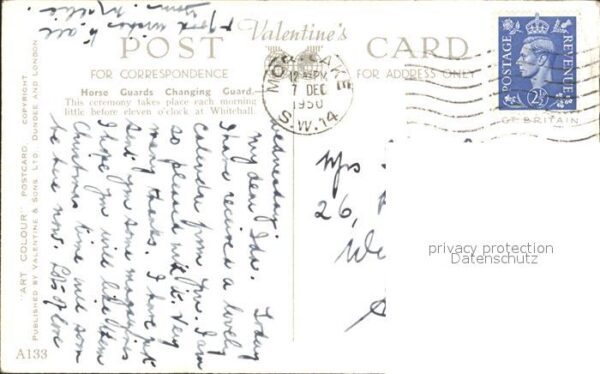 Valentine's
POST CARD
FOR CORRESPONDENCE
FOR ADDRESS ONLY
Horse Guards Changing Guard.
This ceremony takes place each morning
little before eleven o'clock at Whitehall.
"ART COLOUR" POSTCARD. COPYRIGHT
PUBLISHED BY VALENTINE & SONS. LTD. DUNDEE AND LONDON
A133
MORTLAKE
12 45 PM
7 DEC
1950
S.W.14
POSTAGE
REVENUE
2½D
GT BRITAIN
Wednesday
My dear Ida. Today
I have received a lovely
calendar from you. I am
so pleased with it. Very
many thanks. I have just
sent you some magazines
I hope you will like them
Christmas time will soon
be here now. Lots of love
& good wishes to all
from Millie.
Mrs
26,
privacy protection
Datenschutz